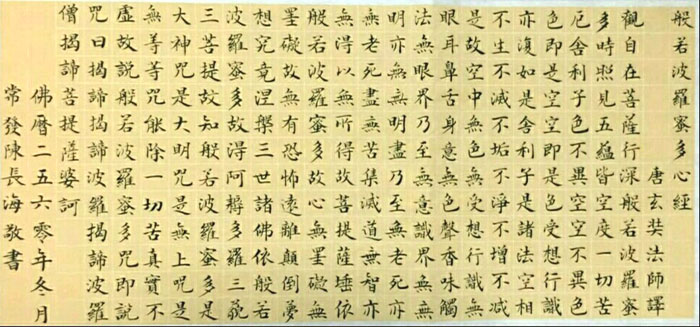 般若波羅蜜多心經
唐玄奘法師譯
觀自在菩薩行深般若波羅蜜
多時照見五蘊皆空度一切苦
厄舍利子色不異空空不異色
色即是空空即是色受想行識
亦復如是舍利子是諸法空相
不生不滅不垢不淨不增不減
是故空中無色無受想行識無
眼耳鼻舌身意無色聲香味觸
法無眼界乃至無意識界無無
明亦無無明盡乃至無老死亦
無老死盡無苦集滅道無智亦
無得以無所得故菩提薩埵依
般若波羅蜜多故心無罣礙無
罣礙故無有恐怖遠離顛倒夢
想究竟涅槃三世諸佛依般若
波羅蜜多故得阿耨多羅三藐
三菩提故知般若波羅蜜多是
大神咒是大明咒是無上咒是
無等等咒能除一切苦真實不
虛故說般若波羅蜜多咒即說
咒曰揭諦揭諦波羅揭諦波羅
僧揭諦菩提薩婆訶
佛曆二五六零年冬月
常發陳長海敬書